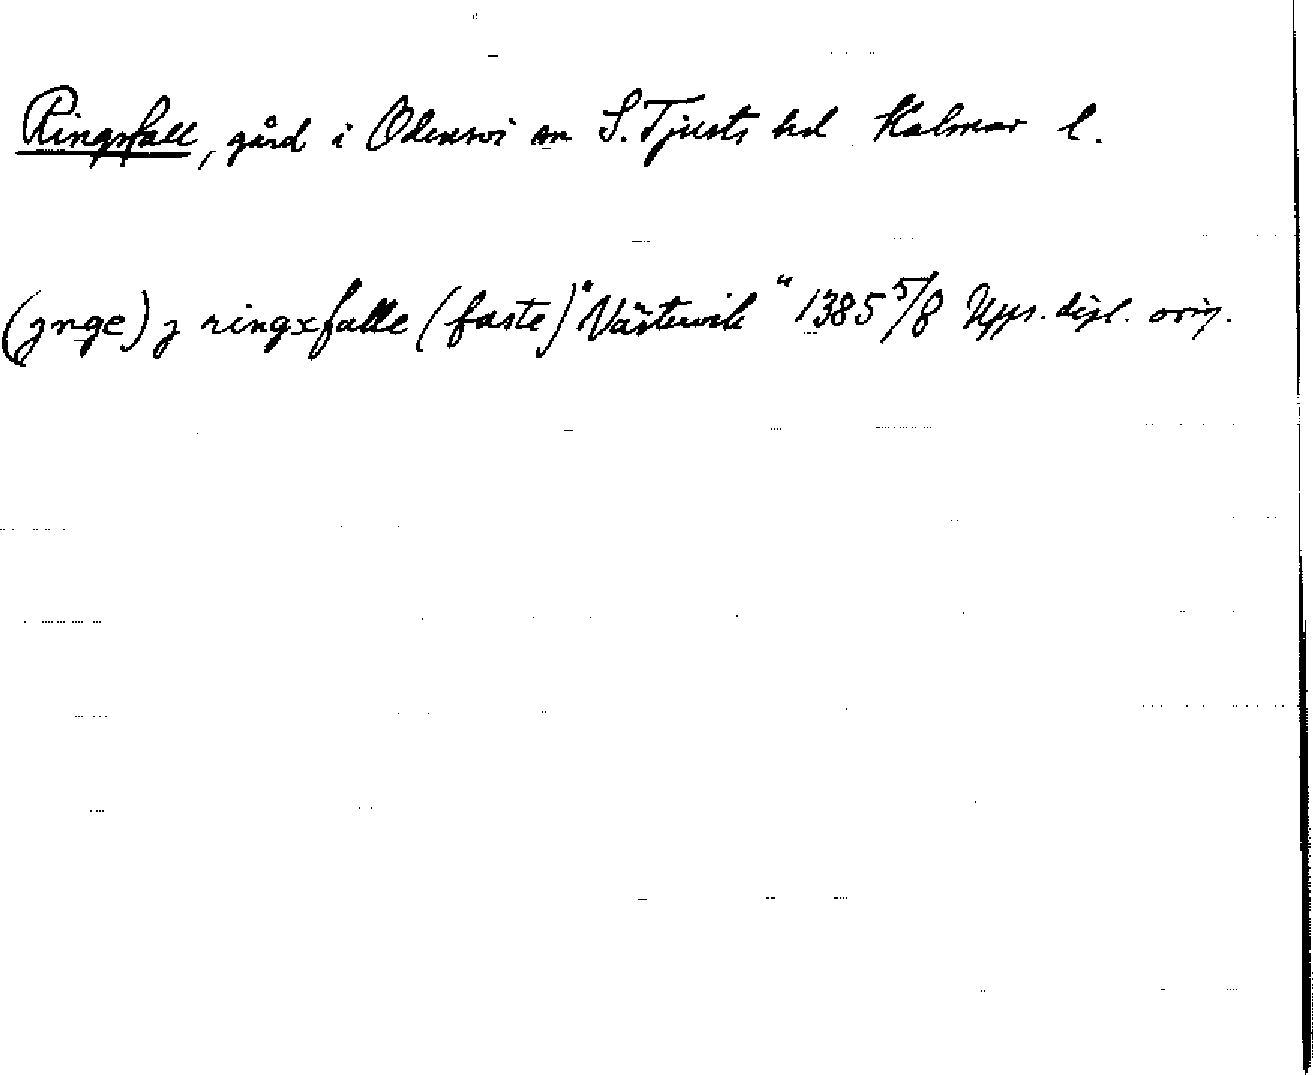 Ringsfall, gård i Odensvi sn S. Tjusts hd Kalmar l.
(jnge) j ringxfalle (faste) "Västervik" 1385 5/8 Upps. dipl. orig.